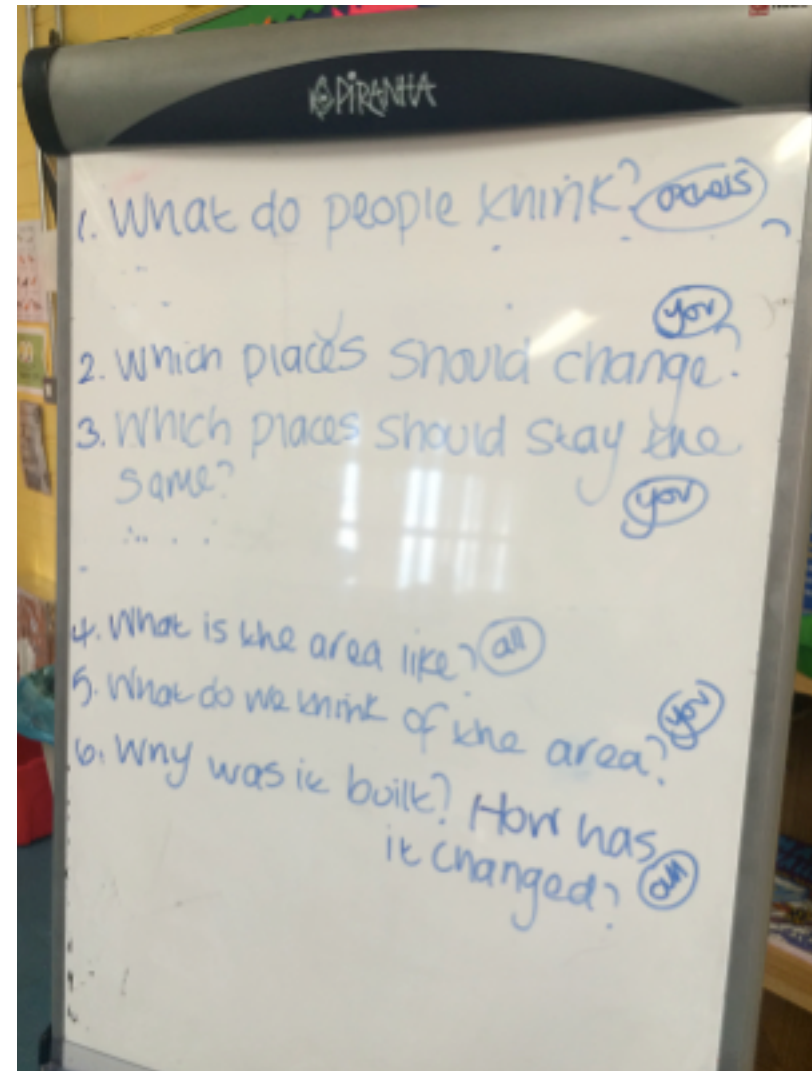 PiRANHA
1. What do people think? others
you
2. Which places should change?
3. Which places should stay the
same?
you
4. What is the area like? all
5. What do we think of the area? you
6. Why was it built? How has
it changed? all